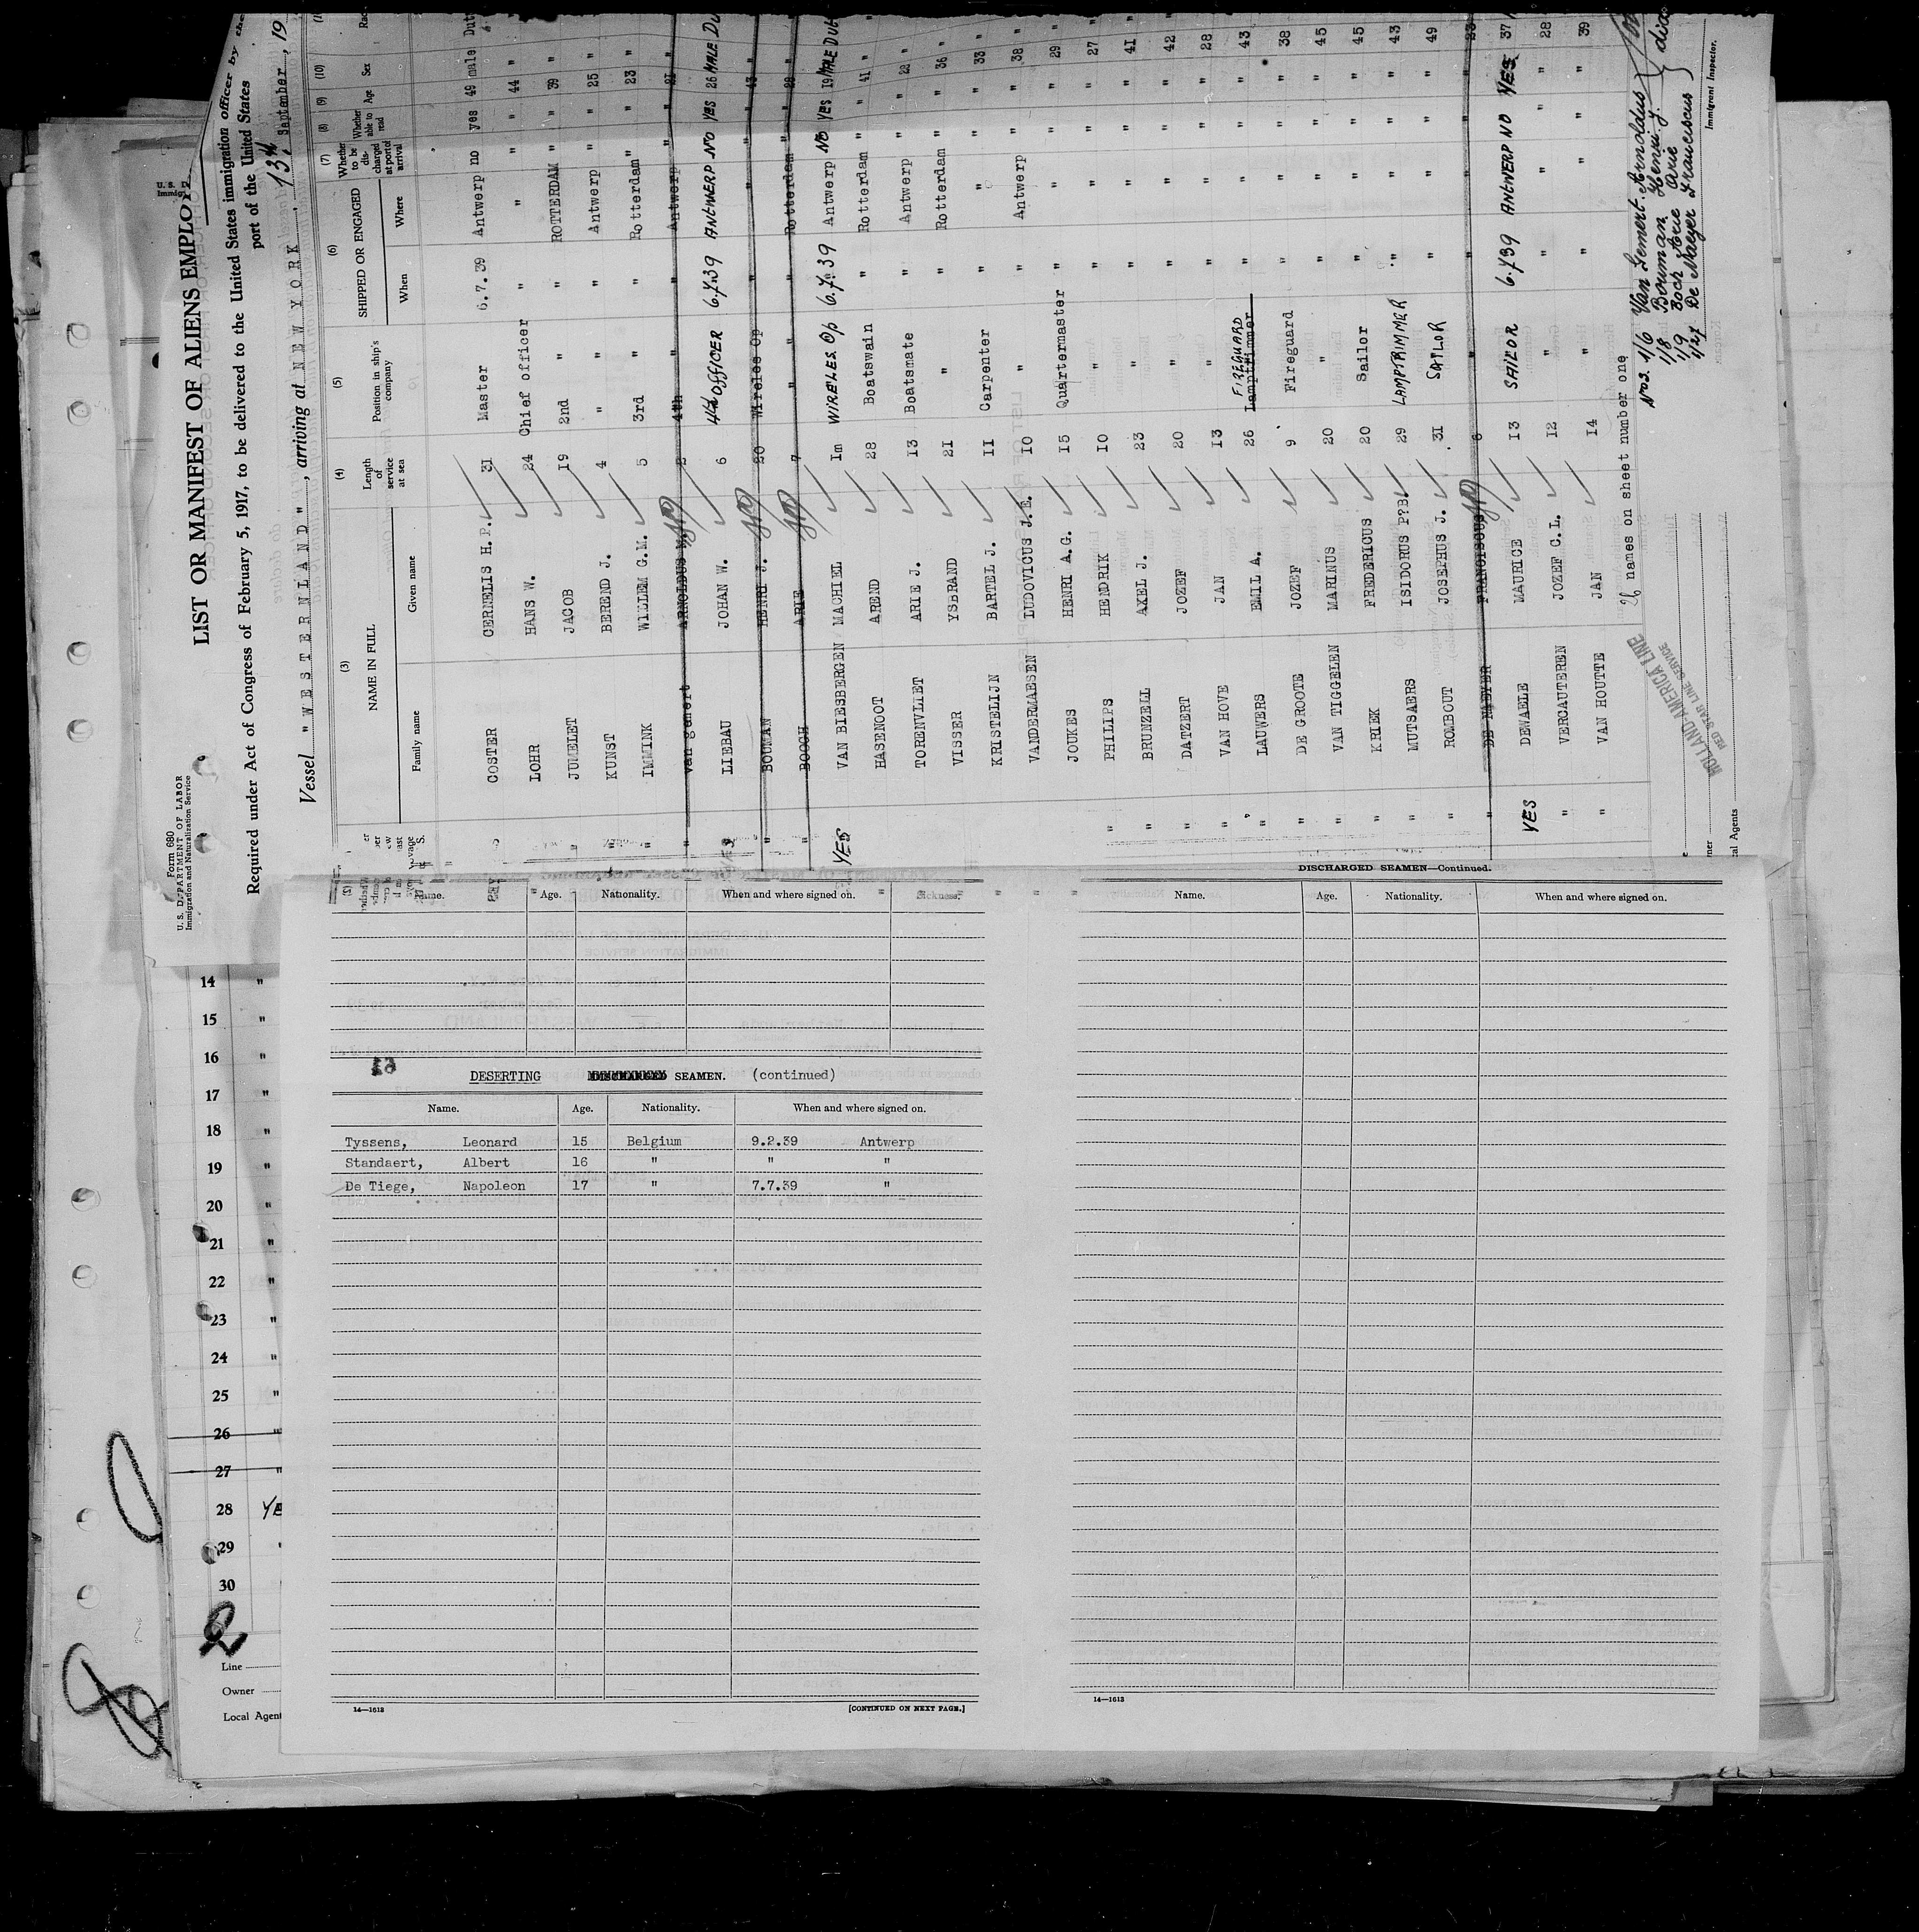 Form 680
U. S. DEPARTMENT OF LABOR
Immigration and Naturalization Service
LIST OR MANIFEST OF ALIENS EMPLOY
Required under Act of Congress of February 5, 1917, to be delivered to the United States immigration officer by the
port of the United States
Vessel "WESTERNLAND", arriving at NEW YORK, 13th September, 19
(3) (4) (5) (6) (7) (8) (9) (10)
NAME IN FULL
Family name Given name
Length of service at sea
Position in ship's company
SHIPPED OR ENGAGED
When Where
Whether to be discharged at port of arrival
Whether able to read
Age Sex
COSTER CERNELIS H.P. 31 Master 6.7.39 Antwerp no yes 49 male Dut
LOHR HANS W. 24 Chief officer " " " " 44 "
JUMELET JACOB 19 2nd " " ROTTERDAM " " 39 "
KUNST BEREND J. 4 " " " Antwerp " " 25 "
IMMINK WILLEM G.M. 5 3rd " " Rotterdam " " 23 "
van gemert ARNOLDUS M. 2 4th " " Antwerp " " 21 "
LIEBAU JOHAN W. 6 4th OFFICER 6.7.39 ANTWERP NO YES 26 MALE DU
BOUMAN HENRI J. 20 Wireles Op " " " " 43 "
BOOGH ARIE 7 " " " Rotterdam " " 28 "
YES VAN BIESBERGEN MACHIEL 1m WIRELES Op 6.7.39 Antwerp NO YES 19 MALE Dut
HASENOOT AREND 28 Boatswain " Rotterdam " " 41 "
TORENVLIET ARIE J. 13 Boatsmate " Antwerp " " 22 "
VISSER YSBRAND 21 " " Rotterdam " " 36 "
KRISTELIJN BARTEL J. 11 Carpenter " " " " 33 "
VANDERMAESEN LUDOVICUS J.E. 10 " " Antwerp " " 38 "
JOUKES HENRI A.G. 15 Quartermaster " " " " 29 "
" PHILIPS HENDRIK 10 " " " " " 27 "
" BRUNZELL AXEL J. 23 " " " " " 41 "
" DATZERT JOZEF 20 " " " " " 42 "
" VAN HOVE JAN 13 " " " " " 28 "
" LAUWERS EMIL A. 26 FIREGUARD Lamptrimmer " " " " 43 "
" DE GROOTE JOZEF 9 Fireguard " " " " 38 "
" VAN TIGGELEN MARINUS 20 " " " " " 45 "
" KRIEK FREDERICUS 20 Sailor " " " " 45 "
" MUTSAERS ISIDORUS P?B. 29 LAMPTRIMMER " " " " 43 "
" ROMBOUT JOSEPHUS J. 31 SAILOR " " " " 49 "
" DE MAEYER FRANCISCUS 6 " " " " " 23 "
YES DEWAELE MAURICE 13 SAILOR 6.7.39 ANTWERP NO YES 37
" VERCAUTEREN JOZEF C.L. 12 " " " " " 28 "
" VAN HOUTTE JAN 14 " " " " " 39 "
26 names on sheet number one
Nos. 1/6 Van Gemert Arnoldus
1/8 Bouman Henri J.
1/9 Boch Arie
1/27 De Maeyer Franciscus
Immigrant Inspector.
HOLLAND-AMERICA LINE
RED STAR LINE SERVICE
Name. Age. Nationality. When and where signed on. Sickness.
61
DESERTING DISCHARGED SEAMEN. (continued)
Name. Age. Nationality. When and where signed on.
Tyssens, Leonard 15 Belgium 9.2.39 Antwerp
Standaert, Albert 16 " " "
De Tiege, Napoleon 17 " 7.7.39 "
14—1613 [CONTINUED ON NEXT PAGE.]
DISCHARGED SEAMEN—Continued.
Name. Age. Nationality. When and where signed on.
14—1613
14 "
15 "
16 "
17 "
18 "
19 "
20 "
21 "
22 "
23 "
24 "
25 "
26 "
27 "
28 YE
29 "
30
2
Line
Owner
Local Agent